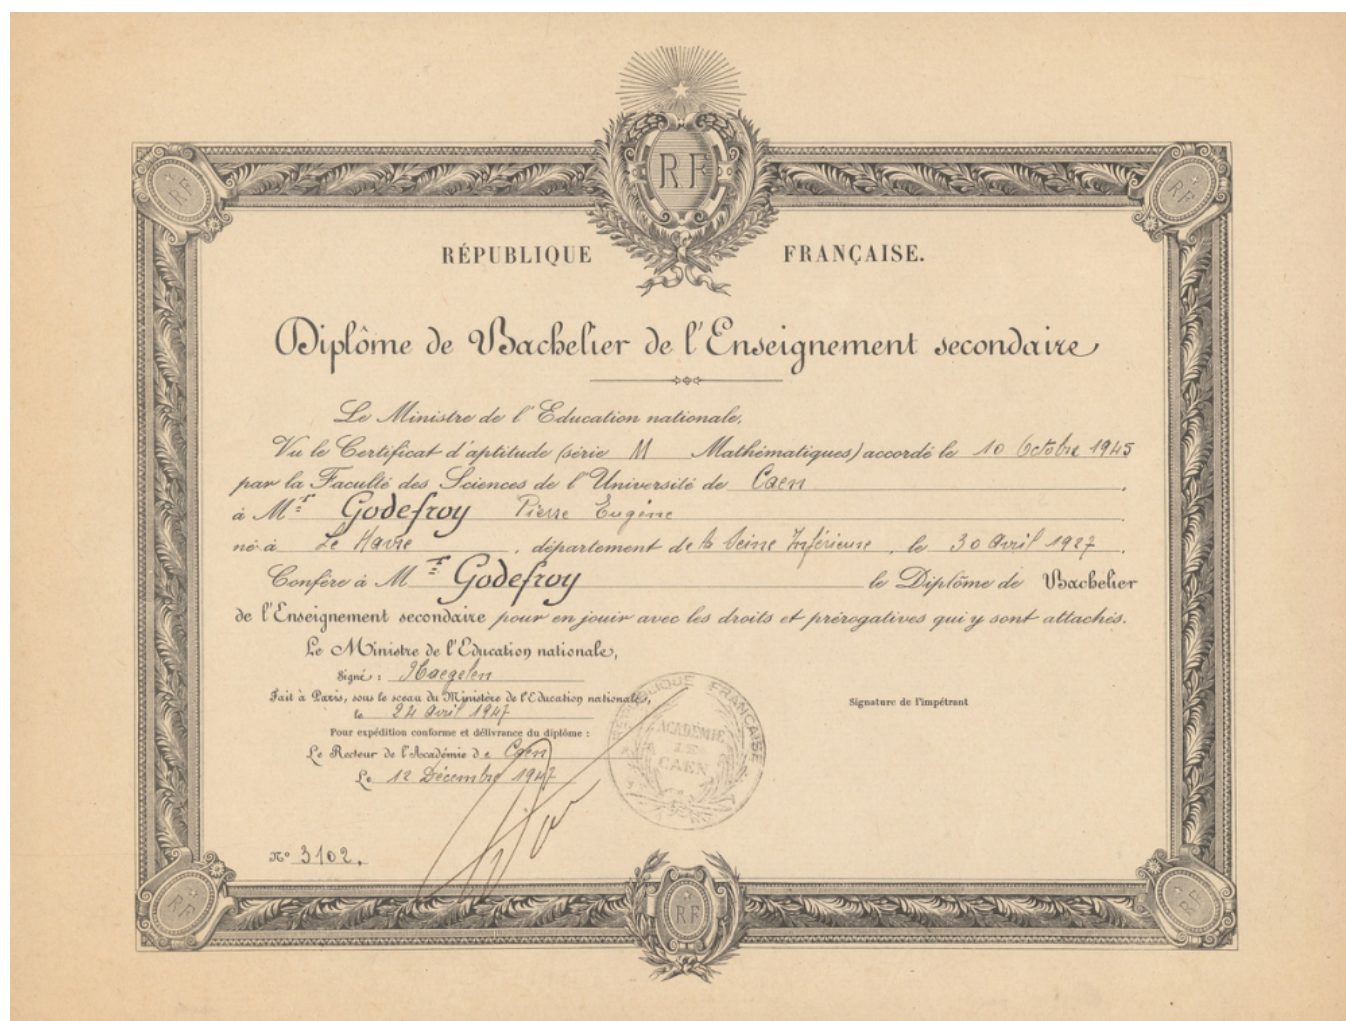 RF
RF
RF
RÉPUBLIQUE FRANÇAISE.
Diplôme de Bachelier de l'Enseignement secondaire
Le Ministre de l'Education nationale,
Vu le Certificat d'aptitude (série M Mathématiques) accordé le 10 Octobre 1945
par la Faculté des Sciences de l'Université de Caen
à Mr Godefroy Pierre Eugène
né à Le Havre, département de la Seine Inférieure, le 30 Avril 1927.
Confère à Mr Godefroy le Diplôme de Bachelier
de l'Enseignement secondaire pour en jouir avec les droits et prérogatives qui y sont attachés.
Le Ministre de l'Education nationale,
Signé : Haegelen
Fait à Paris, sous le sceau du Ministère de l'Education nationale,
le 24 Avril 1947
Signature de l'impétrant
Pour expédition conforme et délivrance du diplôme :
Le Recteur de l'Académie de Caen
Le 12 Décembre 1947
RÉPUBLIQUE FRANÇAISE
ACADÉMIE
DE
CAEN
N° 3102.
RF
RF
RF